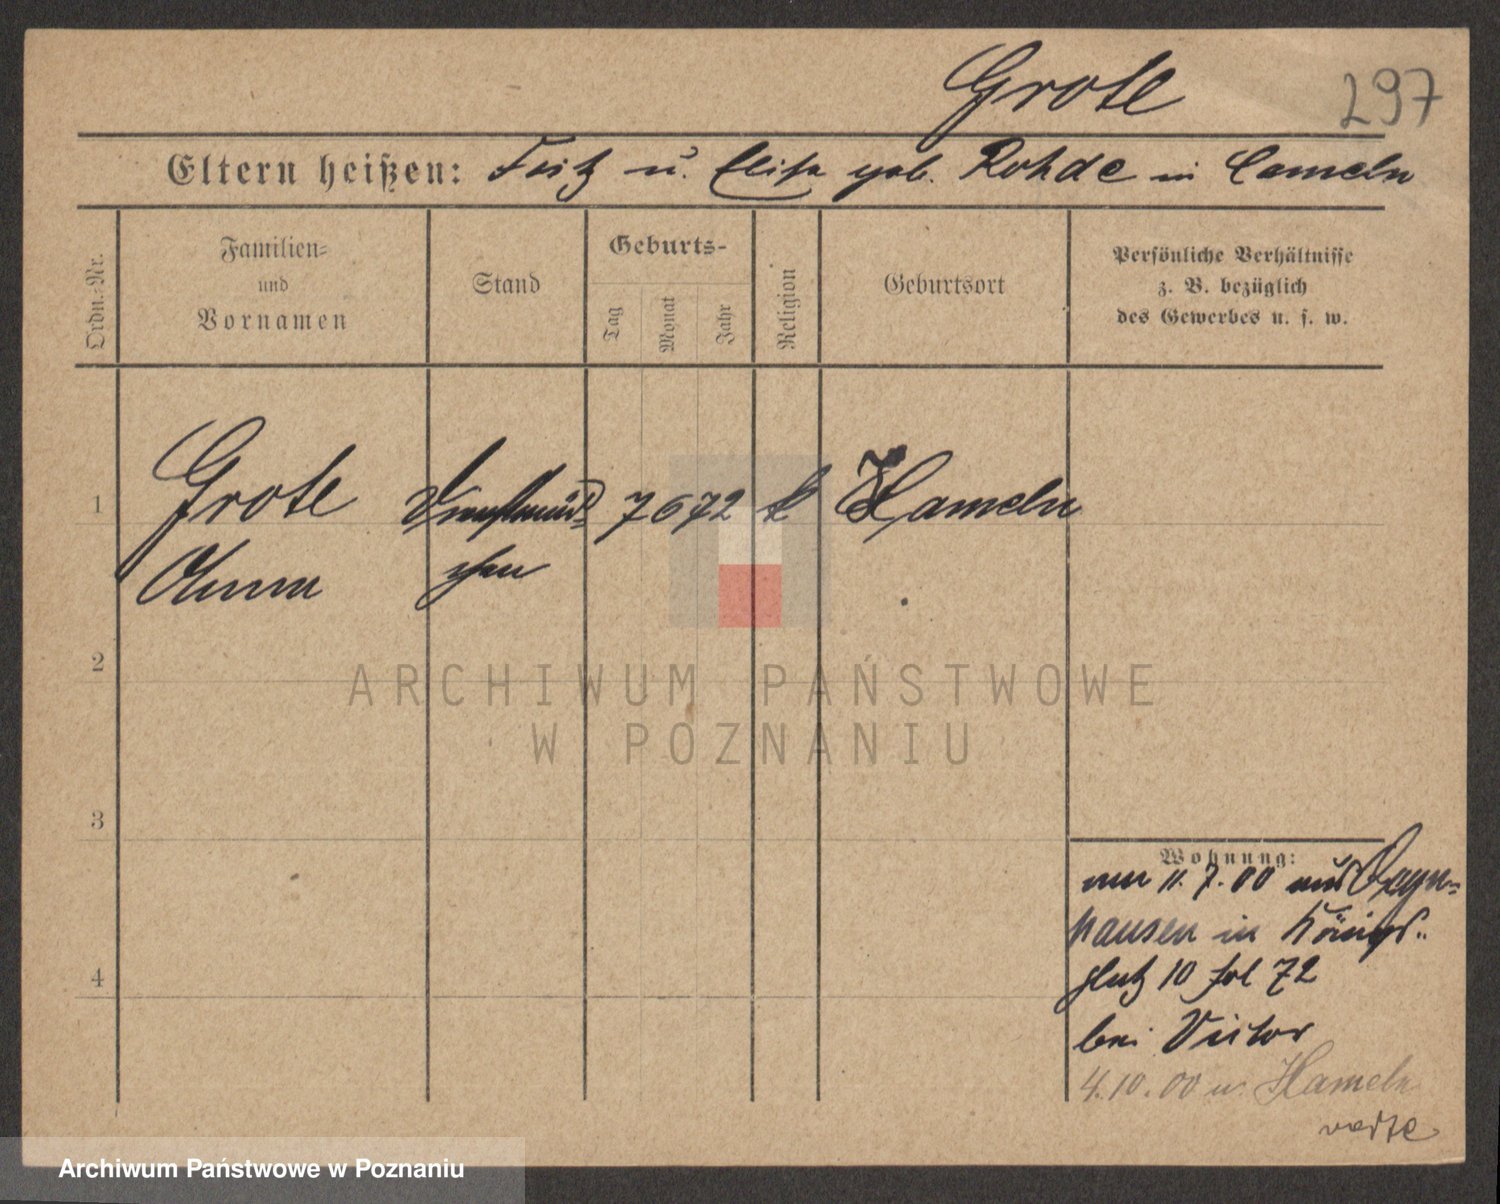 Grote
297
Eltern heißen: Fritz u. Elise geb. Rohde in Hameln
Ordn.-Nr.
Familien-
und
Vornamen
Stand
Geburts-
Tag
Monat
Jahr
Religion
Geburtsort
Persönliche Verhältnisse
z. B. bezüglich
des Gewerbes u. s. w.
1
Grote
Anna
Dienstmäd-
chen
7 6 72
k
Hameln
2
ARCHIWUM PAŃSTWOWE
W POZNANIU
3
4
Wohnung:
11.7.00 aus Oeyn-
hausen in Königs-
platz 10 fol 72
bei Victor
4.10.00 n. Hameln
verte
Archiwum Państwowe w Poznaniu